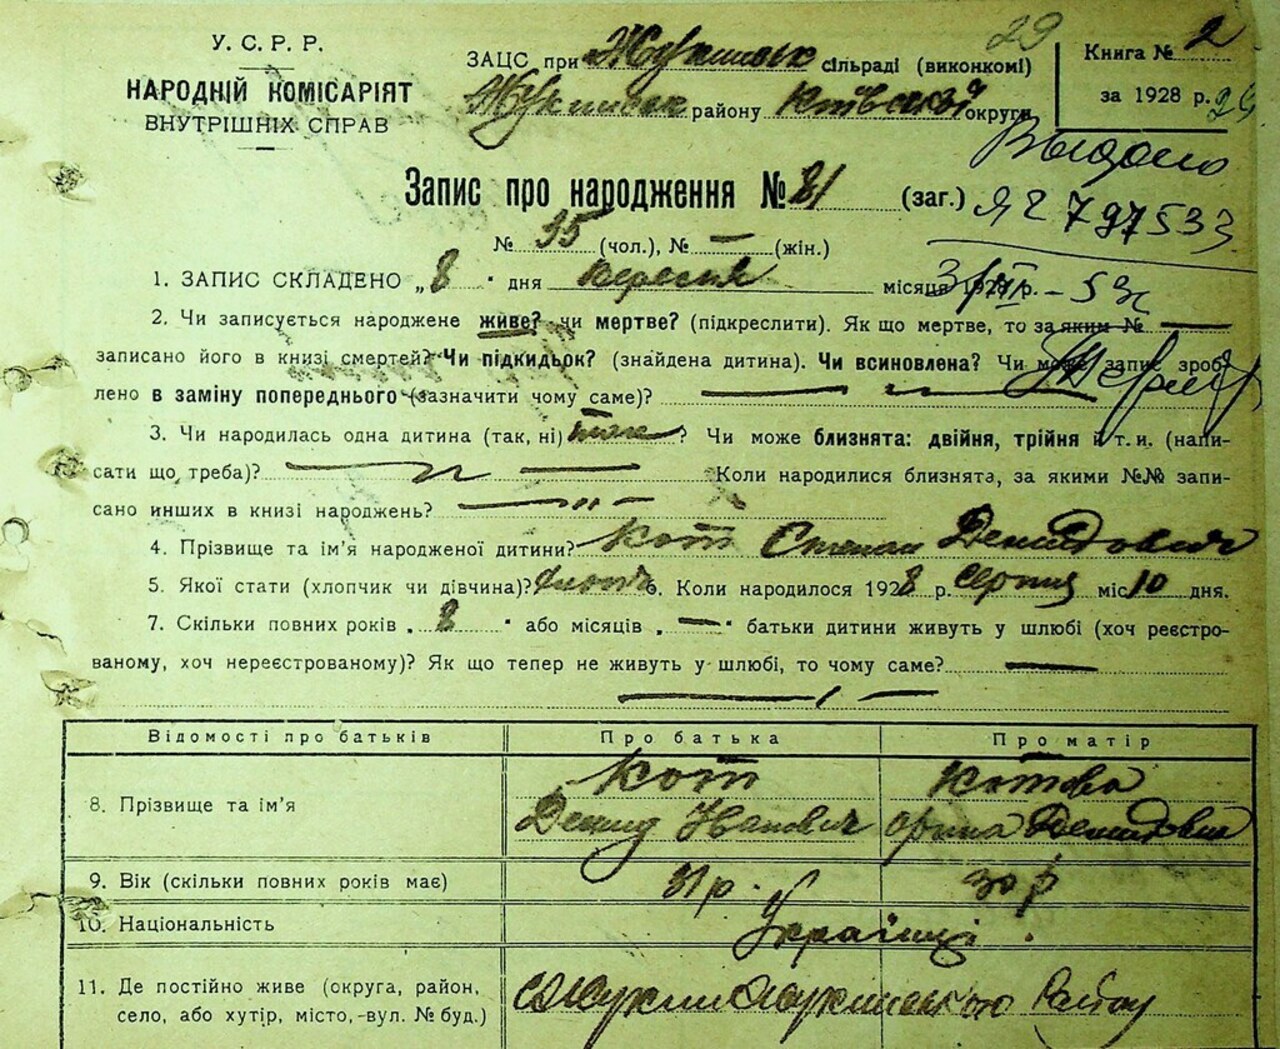 У. С. Р. Р.
НАРОДНІЙ КОМІСАРІЯТ
ВНУТРІШНІХ СПРАВ
29
ЗАЦС при Жукинськ сільраді (виконкомі)
Жукинськ району Київської округи
Книга № 2
за 1928 р. 29
Выдано
ЯЧ 797533
Запис про народження № 81 (заг.)
№ 35 (чол.), № — (жін.)
1. ЗАПИС СКЛАДЕНО „ 8 " дня вересня місяця 1928 р.
2. Чи записується народжене живе? чи мертве? (підкреслити). Як що мертве, то за яким № —
записано його в книзі смертей? Чи підкидьок? (знайдена дитина). Чи всиновлена? Чи може запис зроб-
лено в заміну попереднього (зазначити чому саме)? —
3. Чи народилась одна дитина (так, ні) так ? Чи може близнята: двійня, трійня й т. и. (напи-
сати що треба)? — Коли народилися близнята, за якими №№ запи-
сано инших в книзі народжень? —
4. Прізвище та ім'я народженої дитини? Кот Степан Демидович
5. Якої стати (хлопчик чи дівчина)? 6. Коли народилося 1928 р. серпня міс 10 дня.
7. Скільки повних років „ 8 " або місяців „ — " батьки дитини живуть у шлюбі (хоч реєстро-
ваному, хоч нереєстрованому)? Як що тепер не живуть у шлюбі, то чому саме? —
Відомості про батьків Про батька Про матір
8. Прізвище та ім'я Кот Котова
Демид Іванович Орина Демидовна
9. Вік (скільки повних років має) 31 р. 30 р
10. Національність Українці
11. Де постійно живе (округа, район,
село, або хутір, місто, -вул. № буд.) с Жукин Жукинського Району